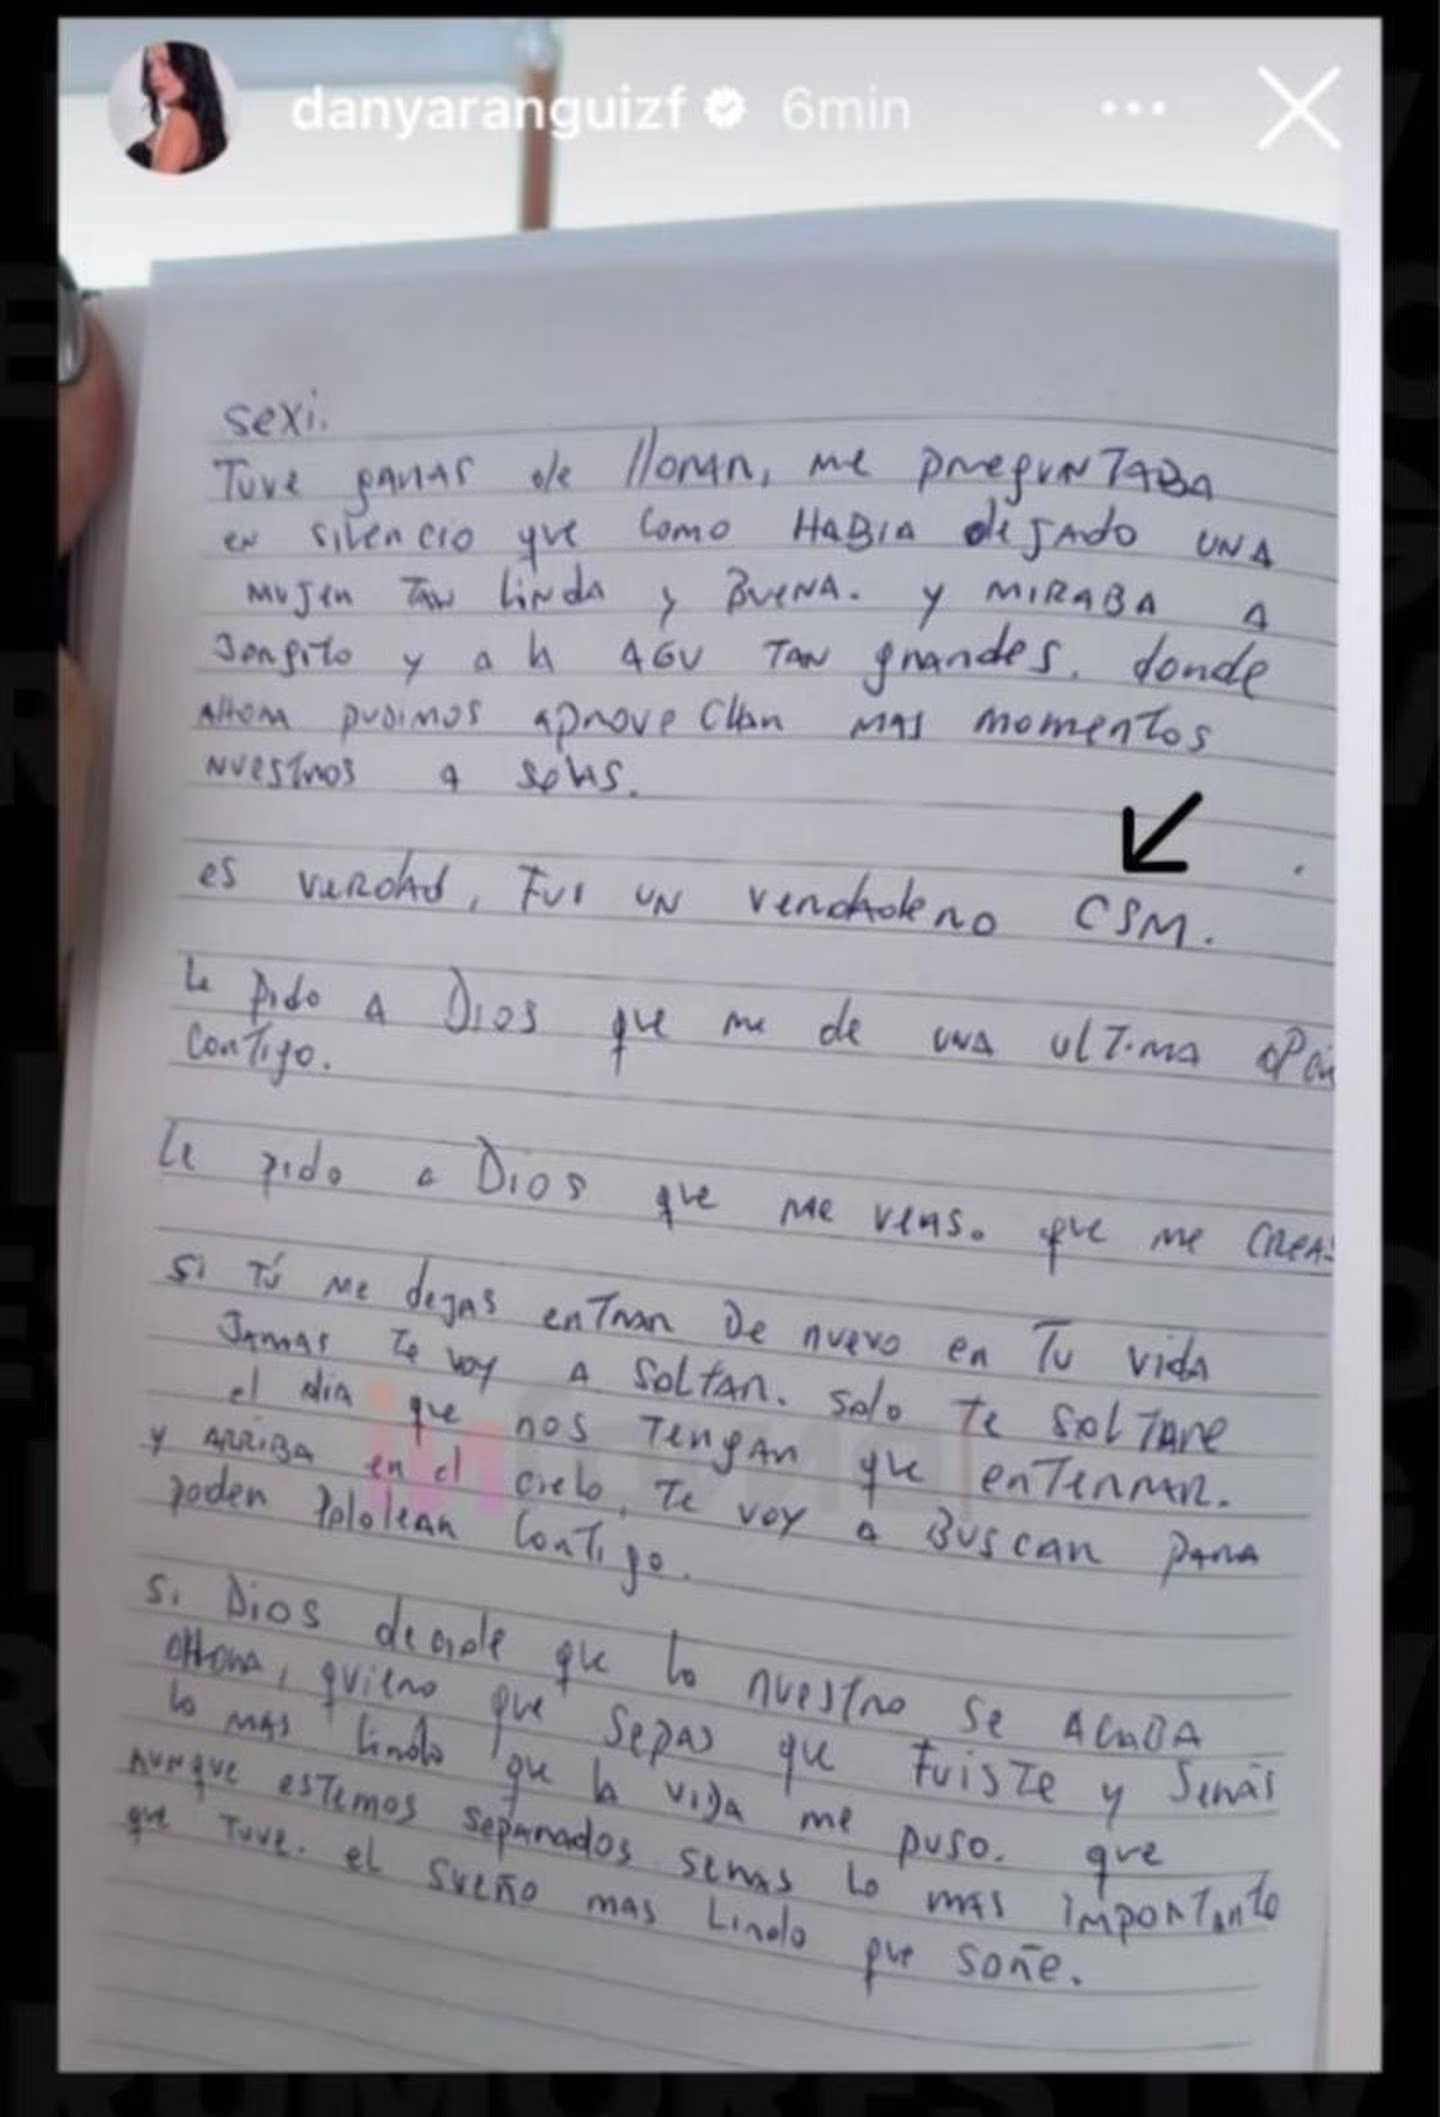 danyaranguizf 6min
sexi.
Tuve ganas de llorar, me preguntaba
en silencio que como HABIA dejado UNA
mujer Tan Linda y Buena. y MIRABA A
Jorgito y a la AGU TAN grandes. donde
AHora pudimos aprovechar mas momentos
nuestros a solas.
es verdad, Fui UN verdadero CSM.
Le pido A Dios que me de una ultima opor
Contigo.
Le pido a Dios que me veas. que me creas
Si Tú me dejas enTrar De nuevo en Tu vida
Jamas Te voy A SolTar. Solo Te SolTare
el dia que nos Tengan que enTerrar.
y ARRIBA en el cielo, Te voy a Buscar para
poder Pololear ConTigo.
Si Dios decide que lo nuestro se Acaba
AHora, quiero que Sepas que Fuiste y Serás
lo mas lindo que la vida me puso. que
aunque esTemos separados seras lo mas imporTante
que Tuve. el sueño mas Lindo que soñe.
RUMORES TV